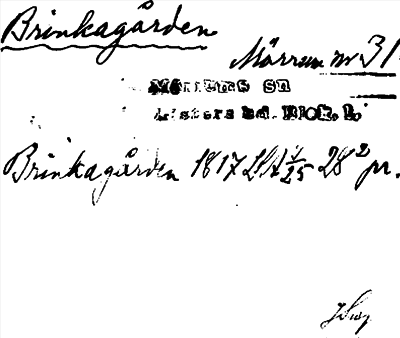 Brinkagården
Mörrum nr 31
Mörrums sn
Listers hd. Blek. l.
Brinkagården 1817 LSA 1/25 28² pr.